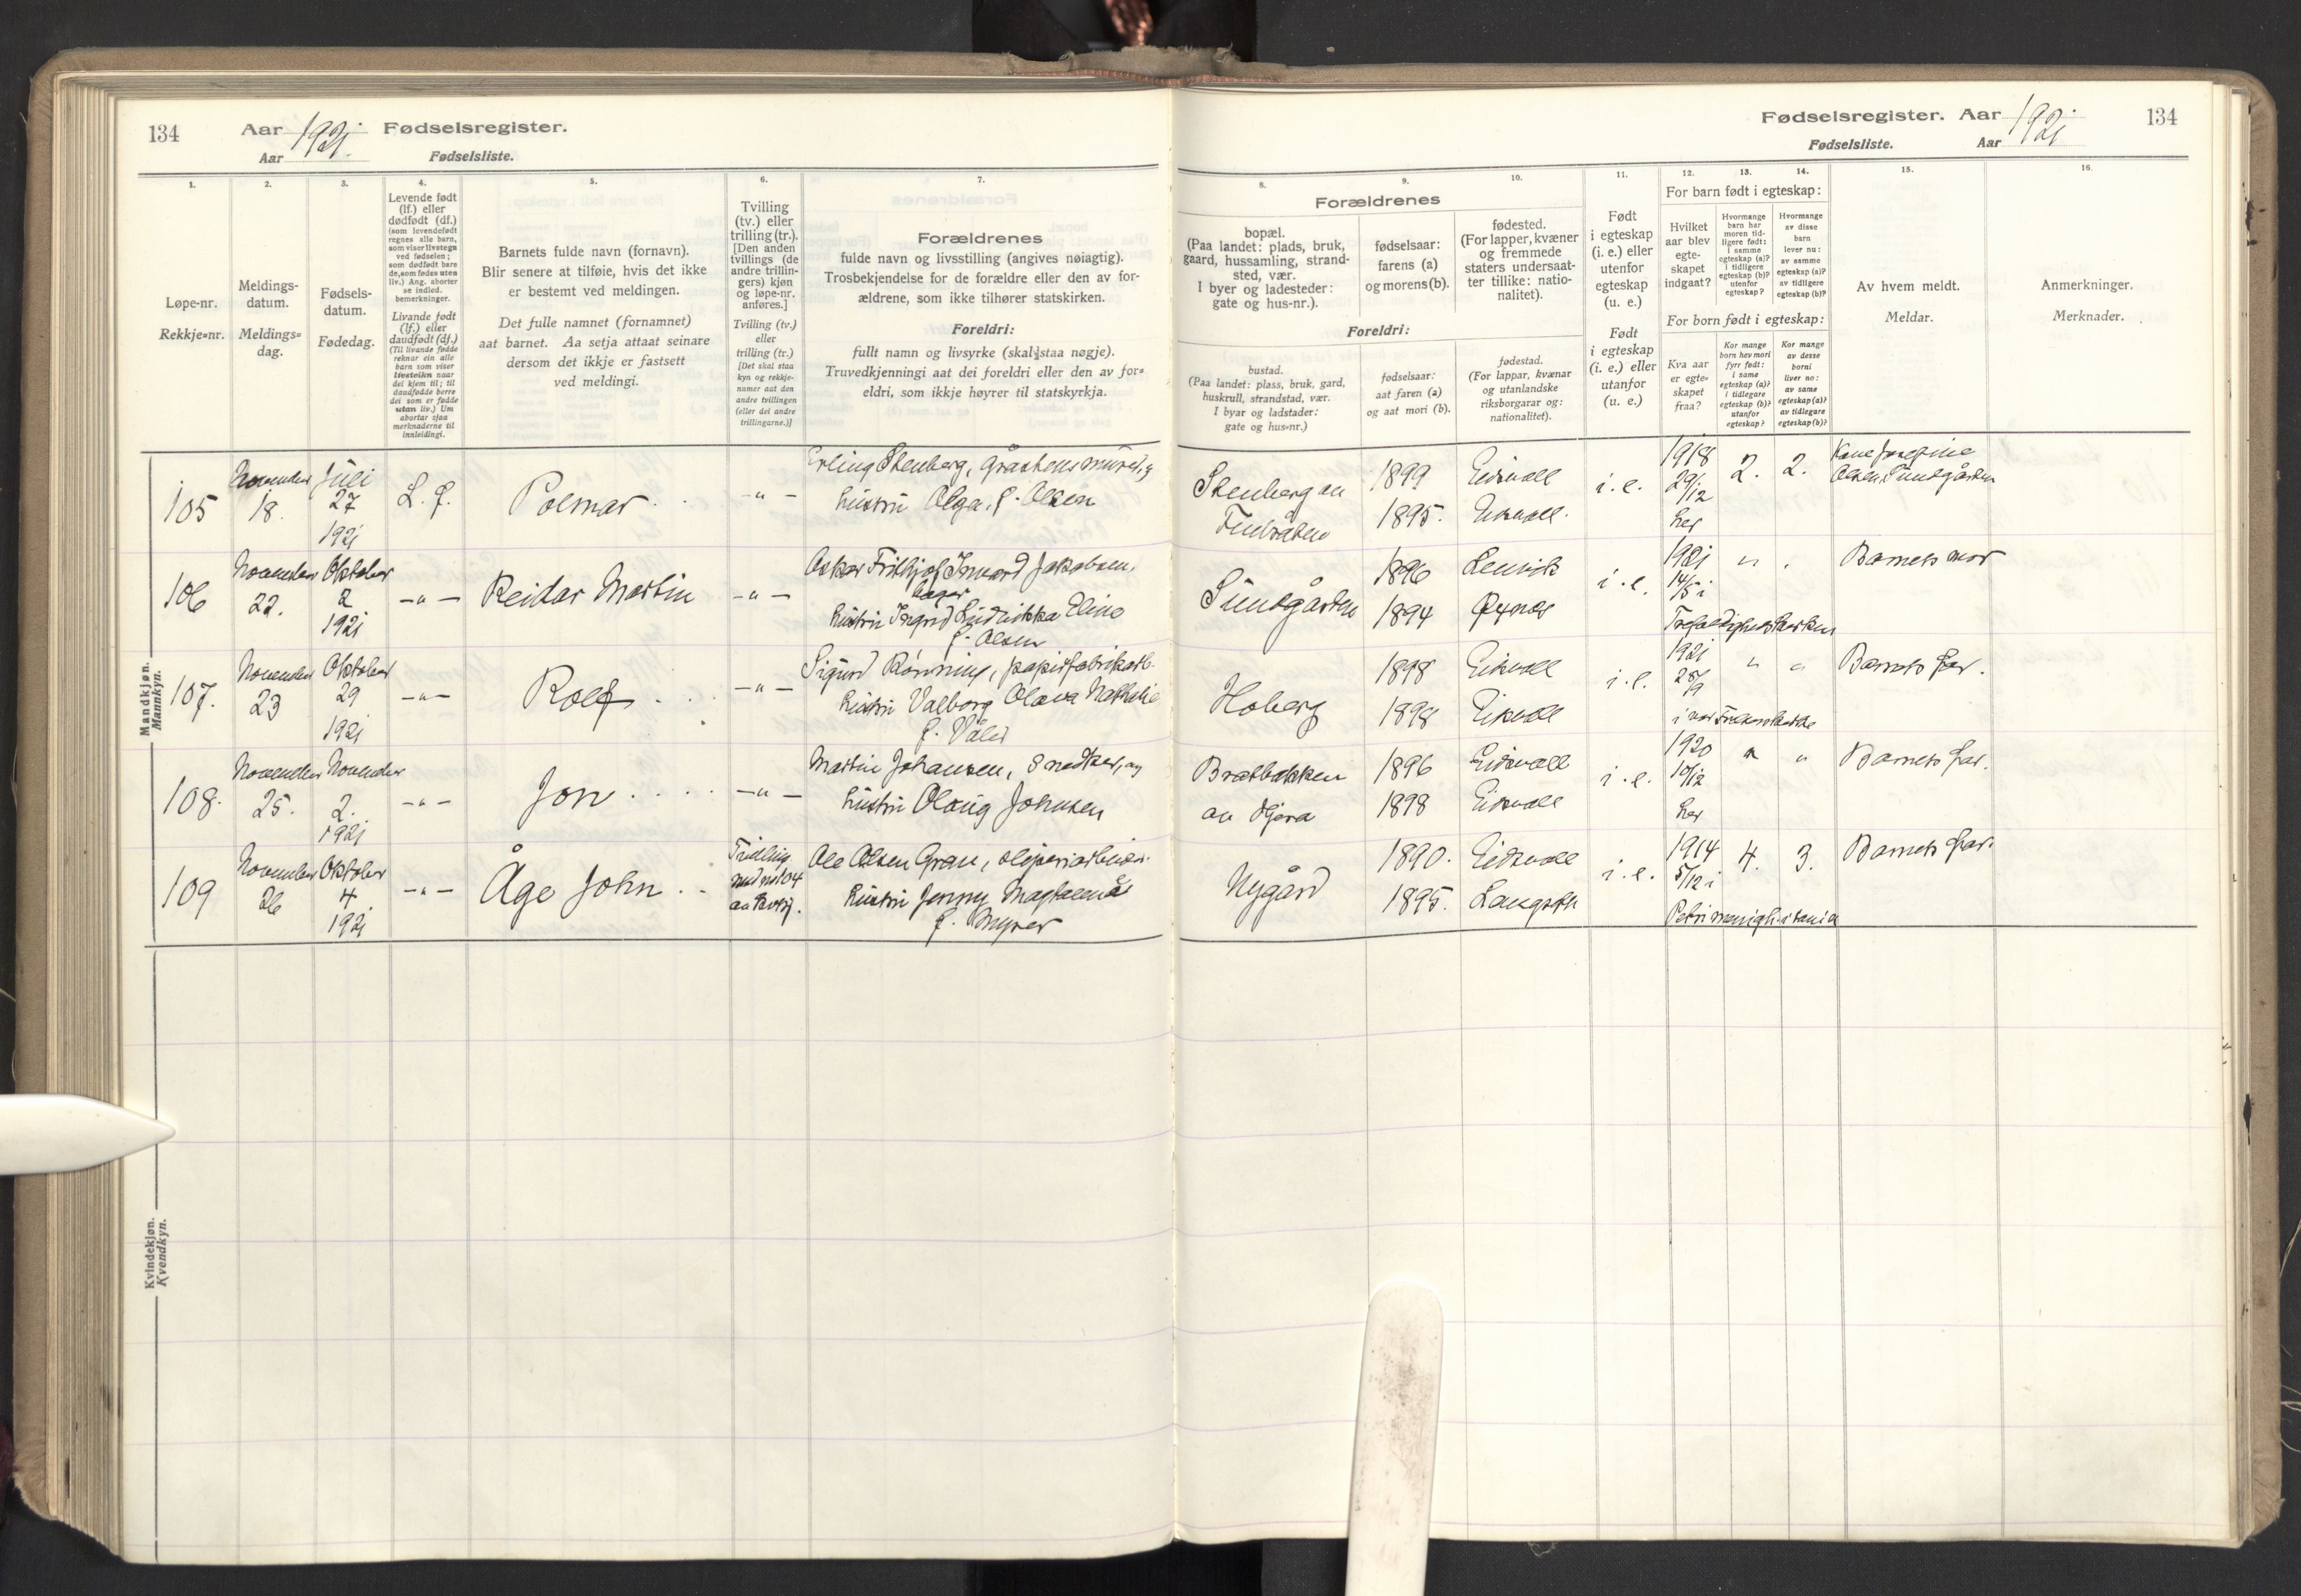 134
Aar 1921. Fødselsregister.
Aar
Fødselsliste.
1.
Løpe-nr.
Rekkje-nr.
2.
Meldings-
datum.
Meldings-
dag.
3.
Fødsels-
datum.
Fødedag.
4.
Levende født
(lf.) eller
dødfødt (df.)
(som levendefødt
regnes alle barn,
som viser livstegn
ved fødselen;
som dødfødt bare
de, som fødes uten
liv.) Ang. aborter
se indled.
bemerkninger.
Livande født
(lf.) eller
daudfødt (df.)
(Til livande fødde
reknar ein alle
barn som viser
livsteikn naar
dei kjem til; til
daudfødde berre
dei som er fødde
utan liv.) Um
abortar sjaa
merknaderne til
innleidingi.
5.
Barnets fulde navn (fornavn).
Blir senere at tilføie, hvis det ikke
er bestemt ved meldingen.
Det fulle namnet (fornamnet)
aat barnet. Aa setja attaat seinare
dersom det ikkje er fastsett
ved meldingi.
6.
Tvilling
(tv.) eller
trilling (tr.).
[Den anden
tvillings (de
andre trillin-
gers) kjøn
og løpe-nr.
anføres.]
Tvilling (tv.)
eller
trilling (tr.)
[Det skal staa
kyn og rekkje-
numer aat den
andre tvillingen
(eller dei andre
trillingarne.)]
7.
Forældrenes
fulde navn og livsstilling (angives nøiagtig).
Trosbekjendelse for de forældre eller den av for-
ældrene, som ikke tilhører statskirken.
Foreldri:
fullt namn og livsyrke (skal staa nøgje).
Truvedkjenningi aat dei foreldri eller den av for-
eldri, som ikkje høyrer til statskyrkja.
Mandkjøn.
Mannkyn.
105
November
18.
Juli
27
1921
L. f.
-"-
Erling Stenberg, Gråstensmurer, og
hustru Olga, f. Olsen
106
November
22.
Oktober
2
1921
-"-
Reidar Martin
-"-
Oskar Fritjof Jakobsen,
hustru Ingrid Eline
f. Olsen
107.
November
23
Oktober
29
1921
-"-
Rolf
-"-
Sigurd Rønning, papirfabrikarb.
hustru Valborg Olava Nathalie
108.
November
25.
November
2.
1921
-"-
Jon
-"-
Martin Johansen, Snedker, og
hustru Olaug Johnsen
109
November
26
Oktober
4
1921
-"-
Åge John
Tvilling
med no 104
Ole Olsen Gran, sliperiarbeider.
hustru Jenny Magdalena
f. Myrer
Kvindekjøn.
Kvendkyn.
Fødselsregister. Aar 1921
134
Fødselsliste.
Aar
8.
Forældrenes
bopæl.
(Paa landet: plads, bruk,
gaard, hussamling, strand-
sted, vær.
I byer og ladesteder:
gate og hus-nr.).
Foreldri:
bustad.
(Paa landet: plass, bruk, gard,
huskrull, strandstad, vær.
I byar og ladstader:
gate og hus-nr.)
9.
fødselsaar:
farens (a)
og morens (b).
fødselsaar:
aat faren (a)
og aat mori (b).
10.
fødested.
(For lapper, kvæner
og fremmede
staters undersaat-
ter tillike: natio-
nalitet).
fødestad.
(For lappar, kvænar
og utanlandske
riksborgarar og:
nationalitet).
11.
Født
i egteskap
(i. e.) eller
utenfor
egteskap
(u. e.)
Født
i egteskap
(i. e.) eller
utanfor
egteskap
(u. e.)
12. 13. 14.
For barn født i egteskap:
Hvilket
aar blev
egte-
skapet
indgaat?
Hvormange
barn har
moren tid-
ligere født:
i samme
egteskap (a)?
i tidligere
egteskap (b)?
utenfor
egteskap?
Hvormange
av disse
barn
lever nu:
av samme
egteskap (a)?
av tidligere
egteskap (b)?
For born født i egteskap:
Kva aar
er egte-
skapet
fraa?
Kor mange
born hev mori
fyrr født:
i same
egteskap (a)?
i tidlegare
egteskap (b)?
utanfor
egteskap?
Kor mange
av desse
borni
liver no:
av same
egteskap (a)?
av tidlegare
egteskap (b)?
15.
Av hvem meldt.
Meldar.
16.
Anmerkninger.
Merknader.
Stenberg av
1899
1895.
Eidsvoll
Eidsvoll.
i. e.
1918
29/12
her
2.
2.
Kone Josefine
Olsen, Sundgården
Sundgården
1896
1894
Lenvik
Øymar
i. e.
1921
14/5 i
Trefoldighetskirken
"
Barnets mor
Hoberg
1898
1898
Eidsvoll
Eidsvoll
i. e.
1921
"
"
Barnets far.
Bratbakken
1896
1898
Eidsvoll
Eidsvoll
i. e.
1920
10/12
her
"
"
Barnets far.
Nygård
1890.
1895.
Eidsvoll
i. e.
1914
5/12 i
Petri menigh.
4.
3.
Barnets far.